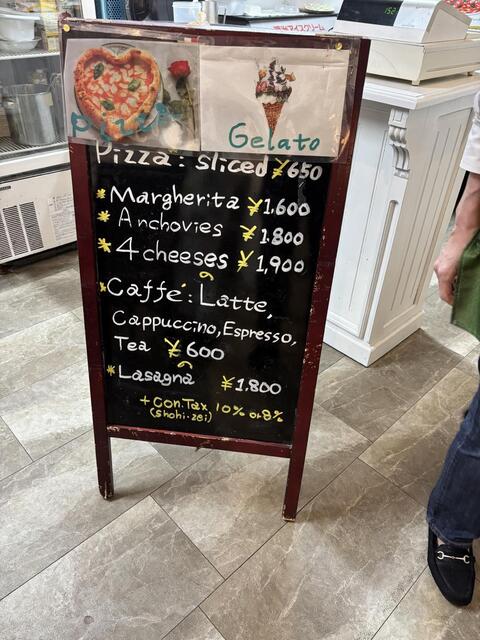 Pizza
Gelato
Pizza: sliced ¥650
* Margherita ¥1.600
* Anchovies ¥1.800
* 4 cheeses ¥1,900
* Caffé: Latte,
Cappuccino, Espresso,
Tea ¥600
* Lasagna ¥1.800
+ Con.Tax, 10% or 8%
(shohi-zei)